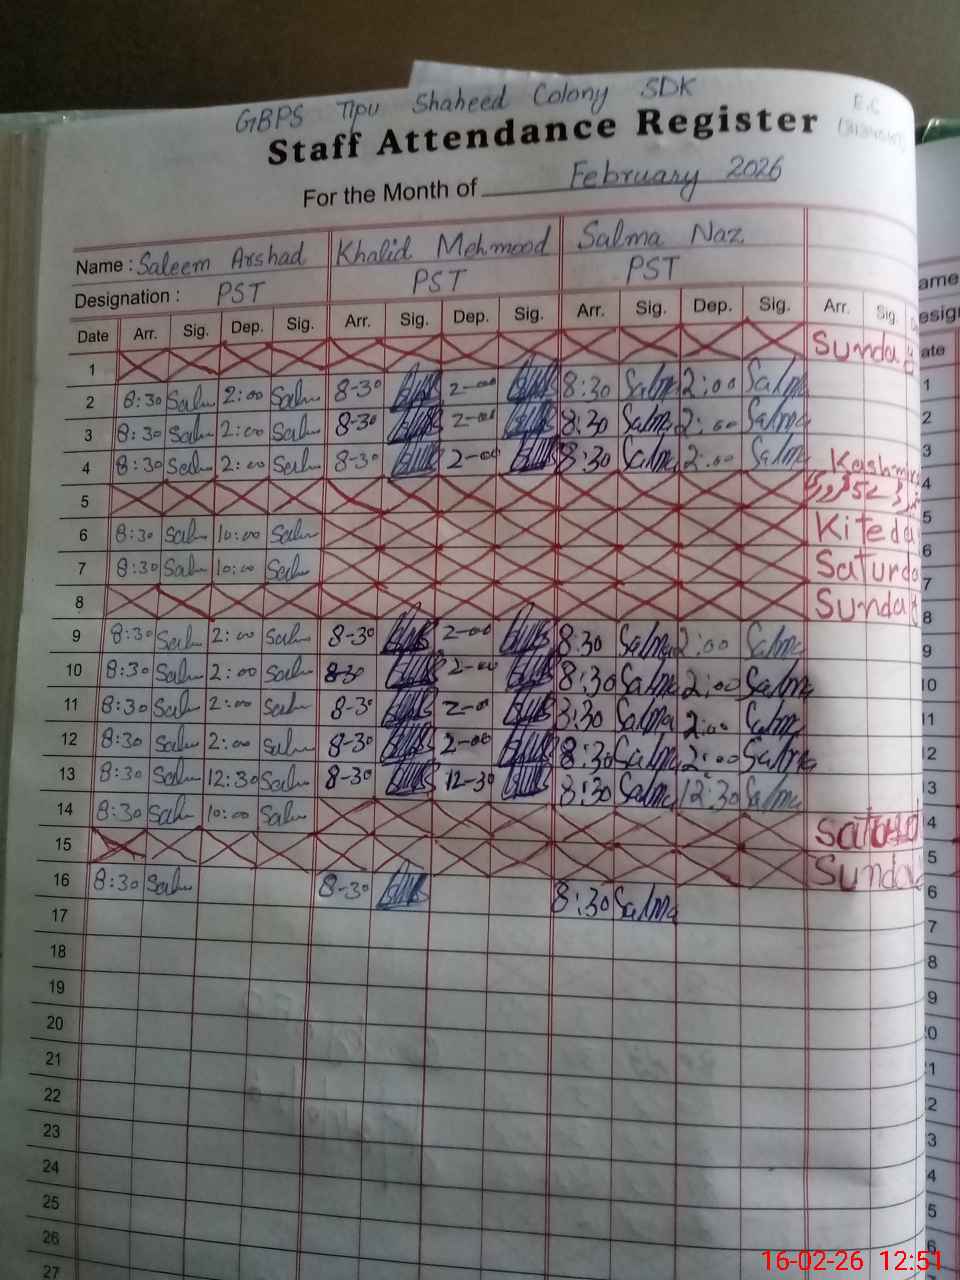 GBPS Tipu Shaheed Colony SDK
E.C
Staff Attendance Register
For the Month of February 2026
Name : Saleem Arshad Khalid Mehmood Salma Naz
Designation : PST PST PST
Date Arr. Sig. Dep. Sig. Arr. Sig. Dep. Sig. Arr. Sig. Dep. Sig. Arr. Sig.
1 Sunday
2 8:30 2:00 8-30 2-00 8:30 Salma 2:00 Salma
3 8:30 2:00 8-30 2-00 8:30 Salma 2:00 Salma
4 8:30 2:00 8-30 2-00 8:30 Salma 2:00 Salma
5 Kashmir
6 8:30 10:00 Kite da
7 8:30 10:00 Saturda
8 Sunday
9 8:30 2:00 8-30 2-00 8:30 Salma 2:00 Salma
10 8:30 2:00 8-30 2-00 8:30 Salma 2:00 Salma
11 8:30 2:00 8-30 2-00 8:30 Salma 2:00 Salma
12 8:30 2:00 8-30 2-00 8:30 Salma 2:00 Salma
13 8:30 12:30 8-30 12-30 8:30 Salma 12:30 Salma
14 8:30 10:00
15 Sunday
16 8:30 8-30 8:30 Salma
17
18
19
20
21
22
23
24
25
26
27
ame
esig
ate
1
2
3
4
5
6
7
8
9
10
11
12
13
4
5
6
7
8
9
0
1
2
3
4
5
6
16-02-26 12:51